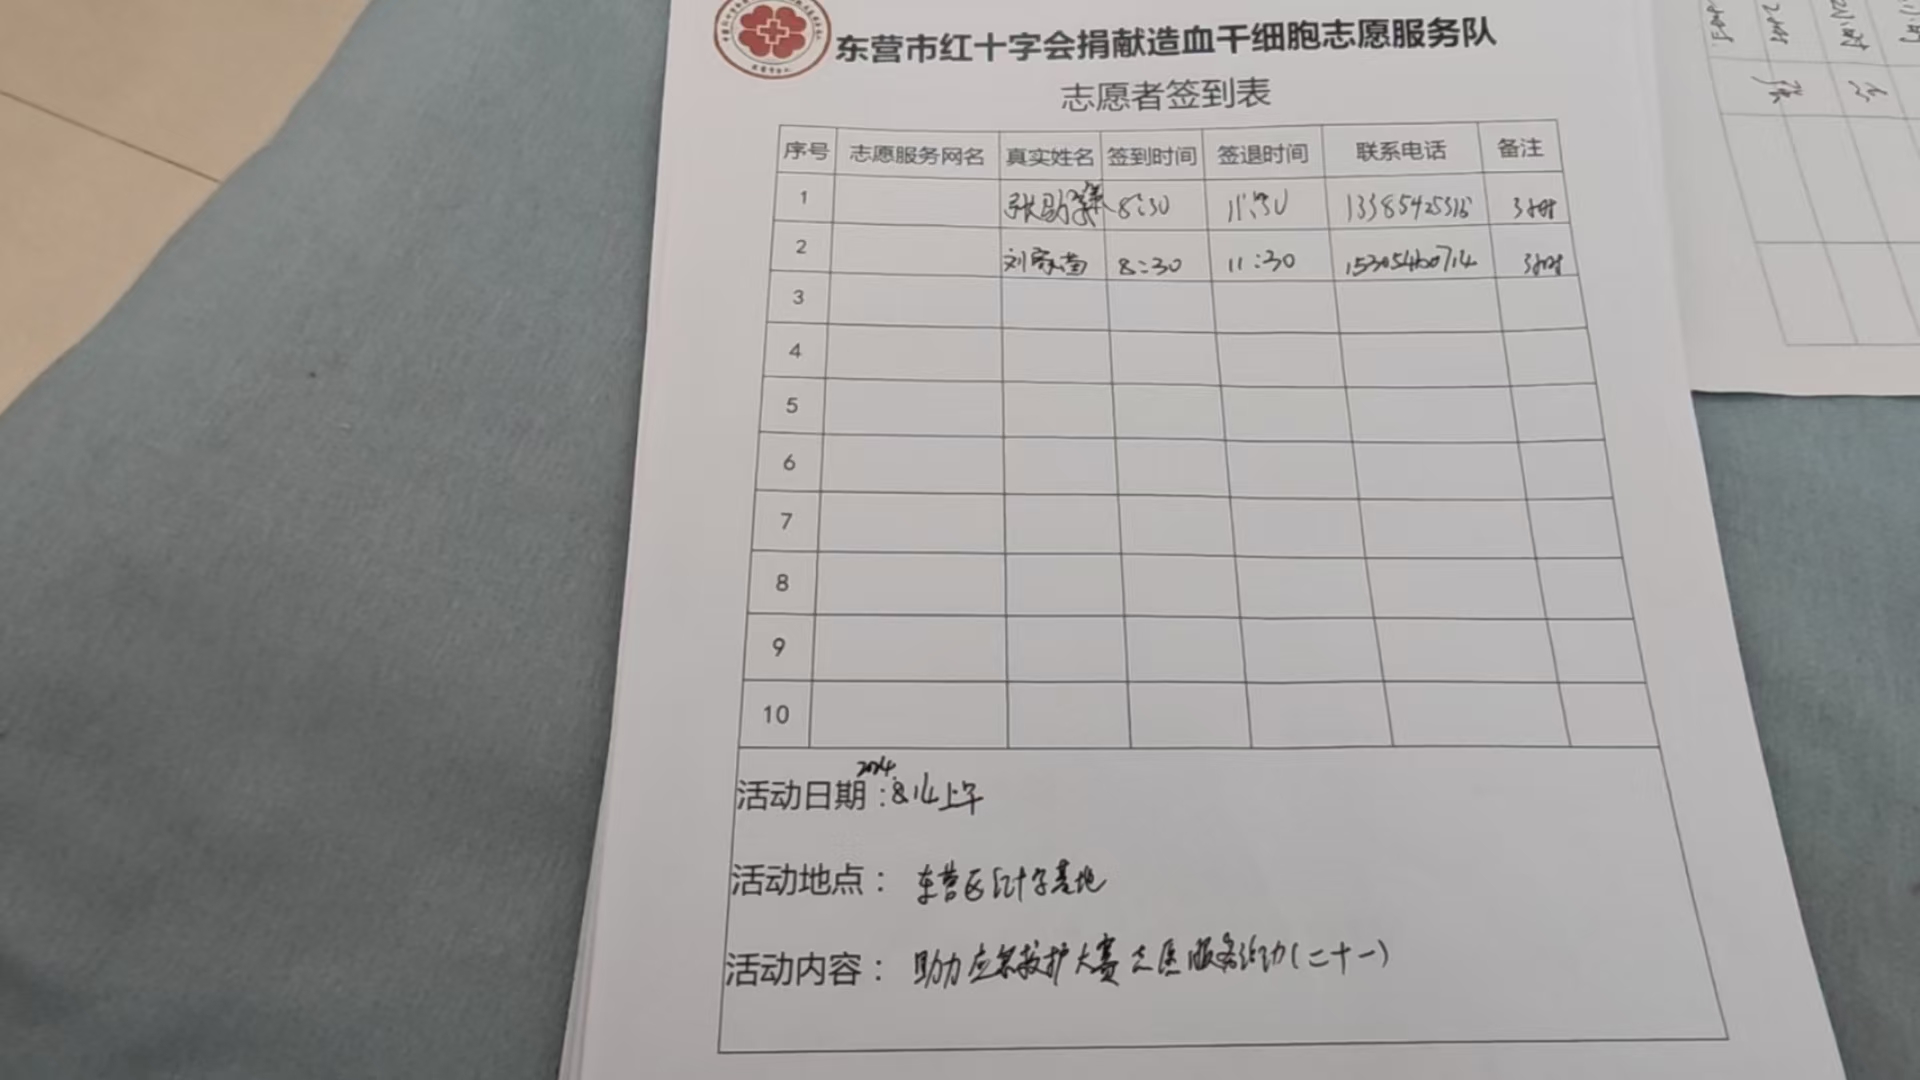 东营市红十字会捐献造血干细胞志愿服务队
志愿者签到表
序号 志愿服务网名 真实姓名 签到时间 签退时间 联系电话 备注
1 8:30 11:30 3小时
2 刘家 8:30 11:30 15305460714 3小时
3
4
5
6
7
8
9
10
活动日期：2024.8.14上午
活动地点：东营区红十字基地
活动内容：助力应急救护大赛志愿服务活动（二十一）